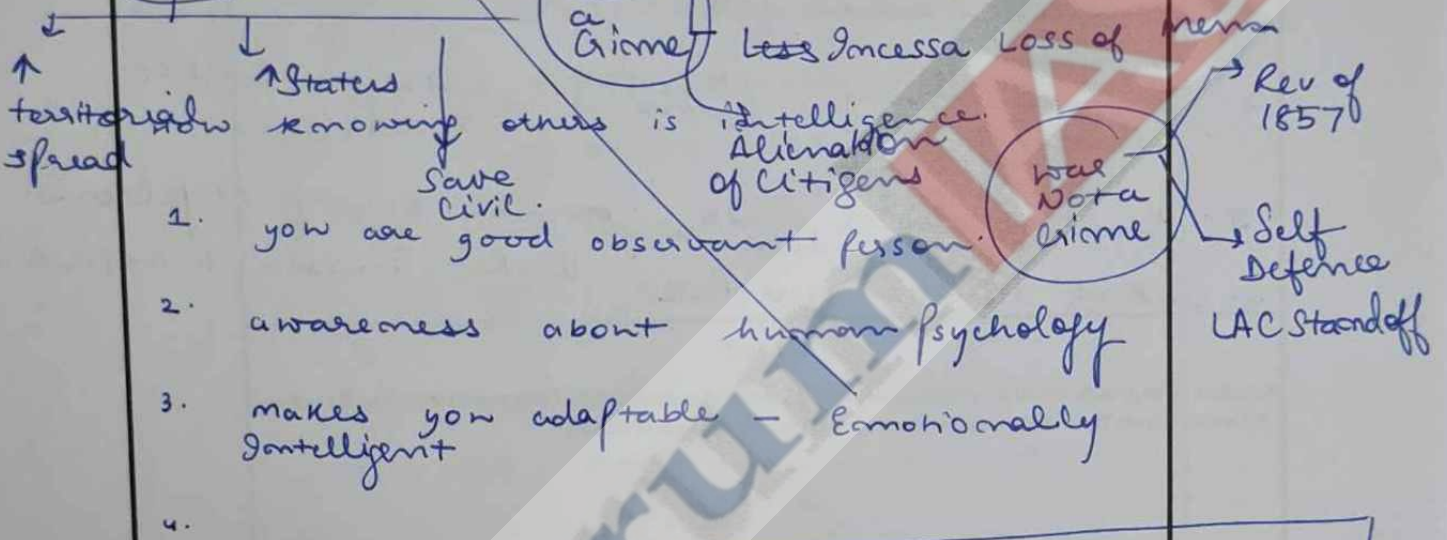 a
Crime
Less Incessa Loss of
↑
territorial
spread
↑ States
Save
Civil.
knowing others is intelligence.
Alienation
of Citizens
was
Not a
Crime
Rev of
1857
Self
Defence
LAC Standoff
1. you are good observant person.
2. awareness about human psychology
3. makes you adaptable - Emotionally
Intelligent
4.
rum IA